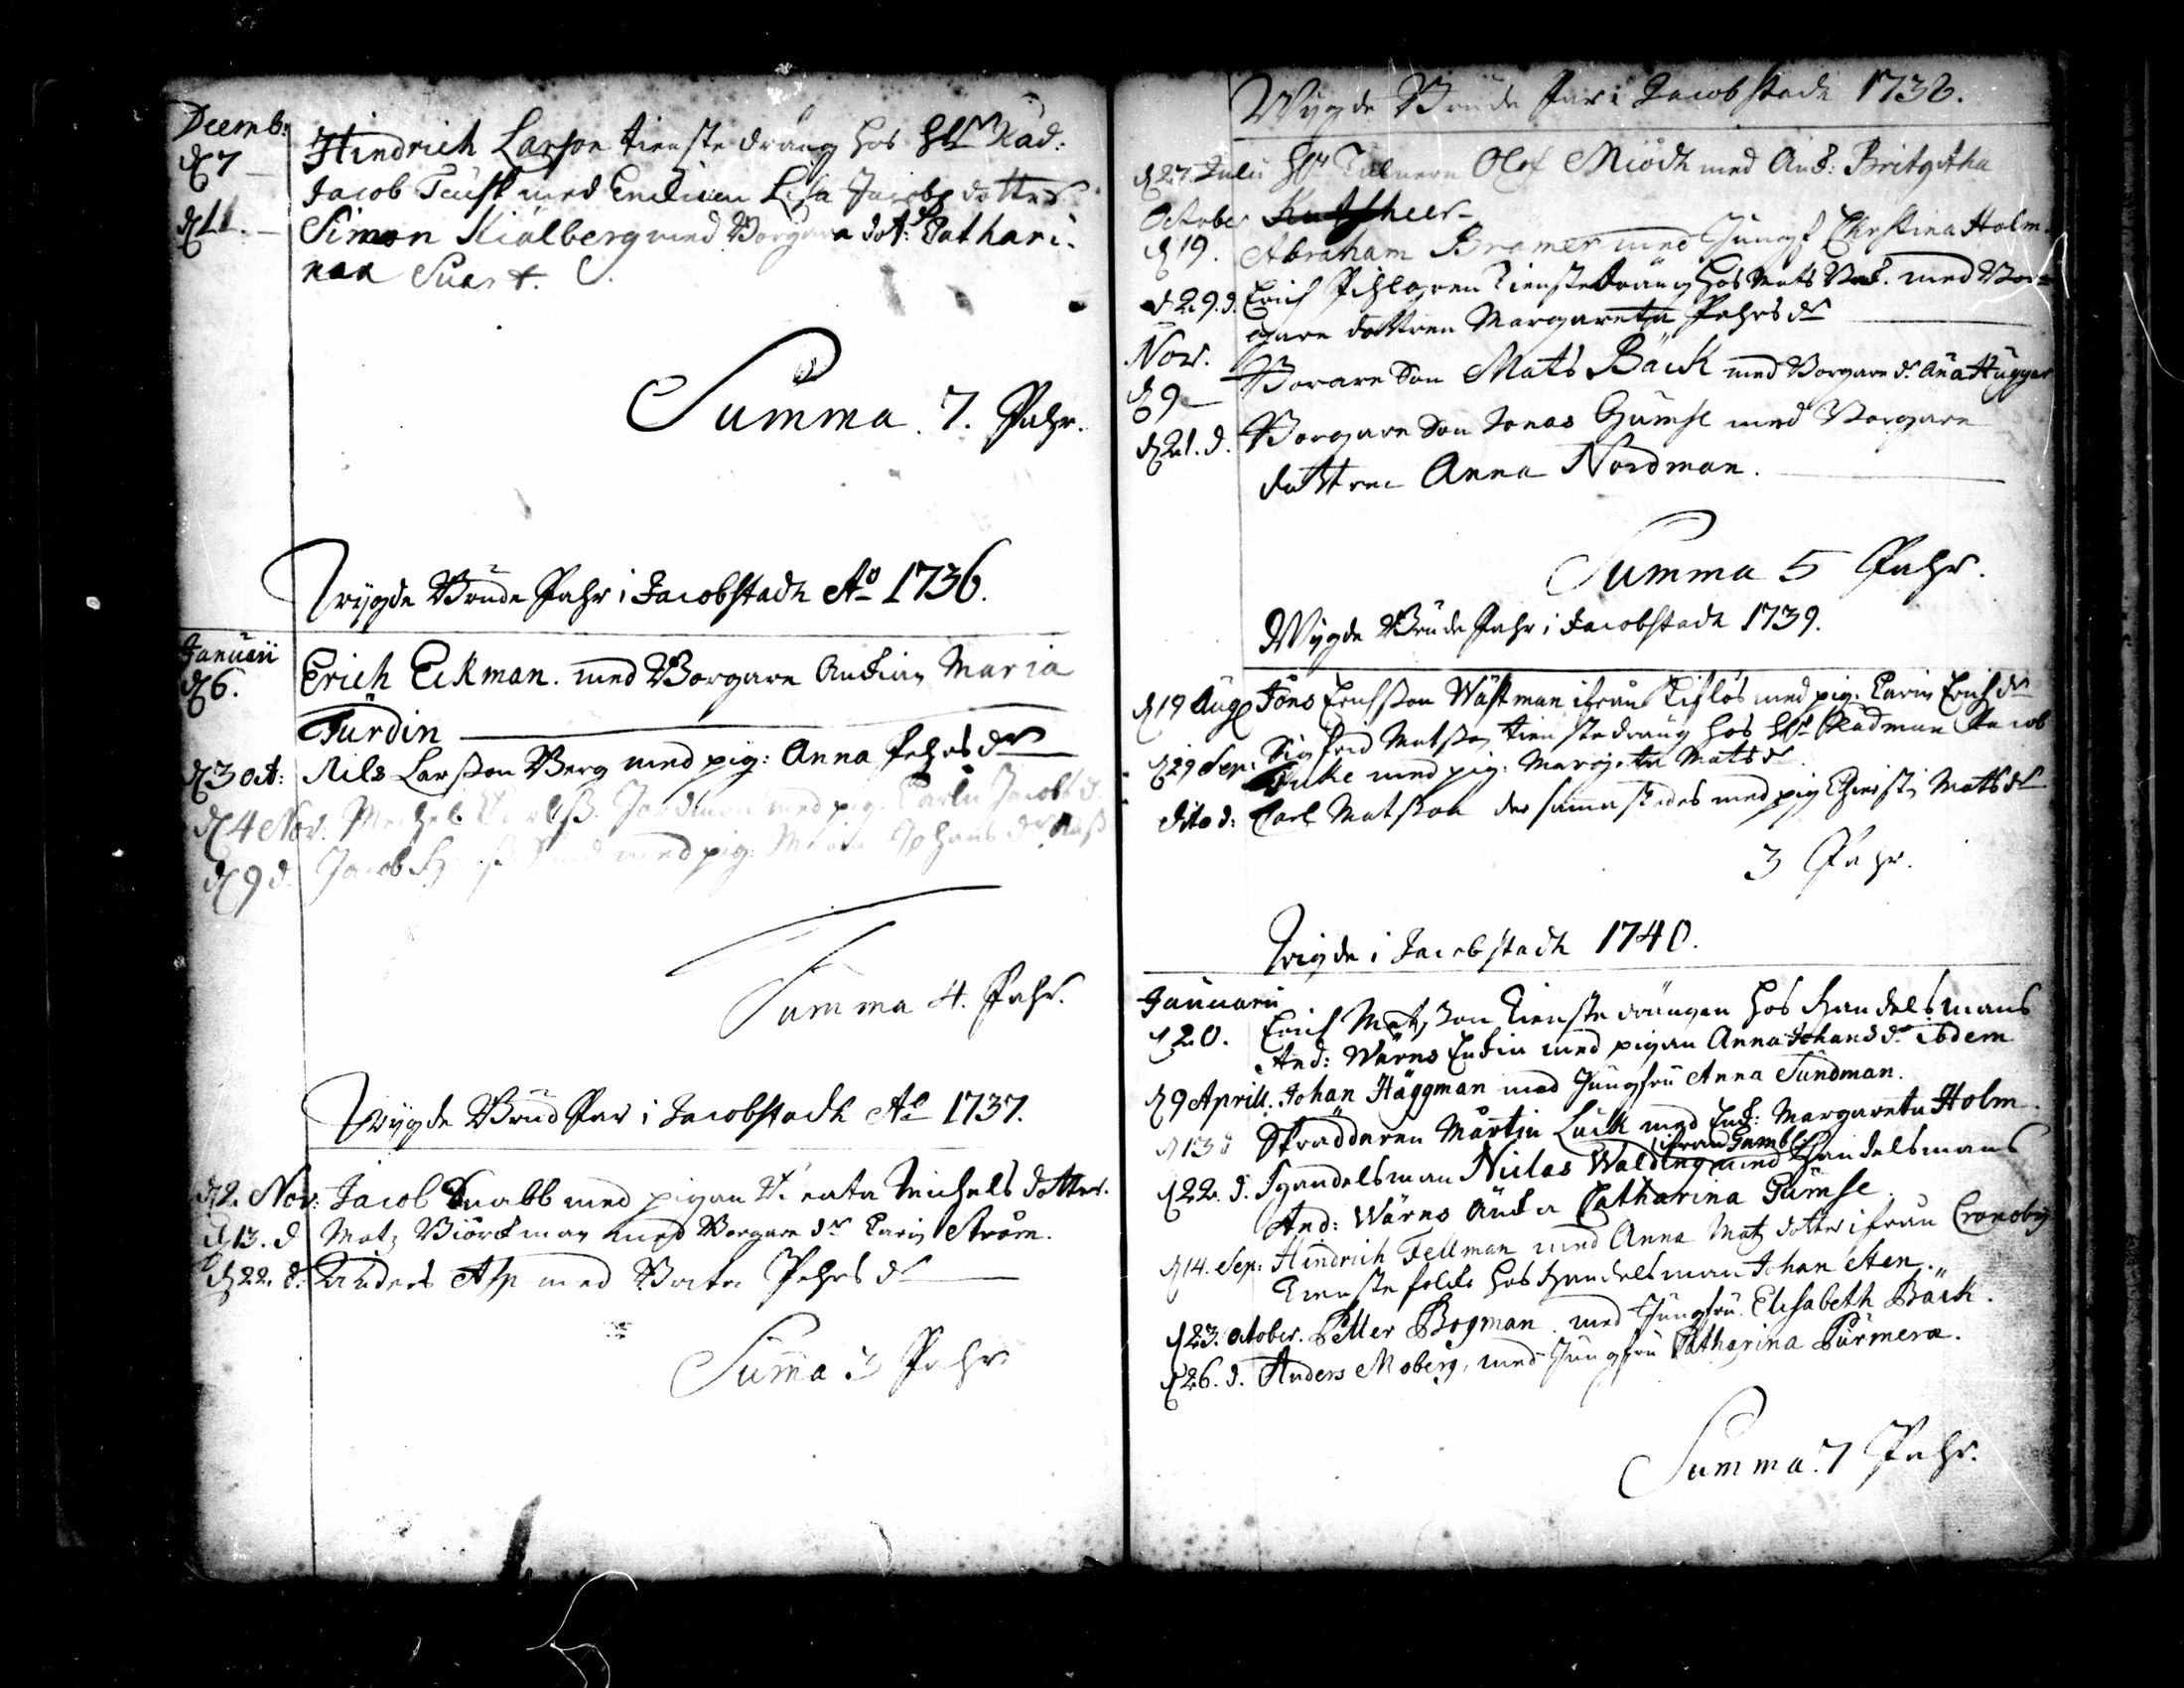 Decemb:
d 7 Hindrich Larson tienste dräng hos Hr Råd:
Jacob med Enckian Lisa Jacobs dotter
d 11. Simon Kiälberg med Borgare dot: Cathari-
naa Suart.
Summa. 7. Pahr.
Wygde Brude Pahr i Jacobstadh Ao 1736.
Januarii
d 6. Erich Eckman. med Borgare Enckian Maria
Turdin
d 3 Oct: Nils Larsson Berg med pig: Anna Pehrs dr
d 4 Nov. Michel med pig. Carin Jacobs d.
d 9 d. Jacob med pig: Maria Johans dr
Summa 4. Pahr.
Wygde Brud Par i Jacobstadh Ao 1737.
d 2. Nov: Jacob Snabb med pigan Beata Michels dotter.
d 13. d Matz Biörckman med Borgare dr Carin Ström.
d 22. d. Anders Asp med Beata Pehrs dr
Suma 3 Pahr
Wygde Brude Par i Jacobstadh 1738.
d 27 Julii Hr Olof Miödh med Enk: Britgitha
October
d 19. Abraham Bremer med Jungf Christina Holm.
d 29. d. Erich Tienstedräng hos Mats med Bor-
gare dottren Margareta Pehrs dr
Nov.
d 9 Borare Son Mats Bäck med Borgare d. Ana Huggar
d 21. d. Borgare Son Jonas Gumse med Borgare
dottren Anna Nordman.
Summa 5 Pahr.
Wygde Brude Pahr i Jacobstadh 1739.
d 19 Aug Jöns Erichsson Wästman ifrån med pig. Carin Erichs dr
d 29 Sep: Sigfred Matsson tienstedräng hos Hr Rådman Jacob
med pig. Margeta Mats dr
dito d: Carl Matsson der samastädes med pig Christi Mats dr
3 Pahr.
Wigde i Jacobstadh 1740.
Januarii
d 20. Erich Matsson Tienste drängen hos Handelsmans
And: Wärns Enckia med pigan Anna Johans dr Ibdem
d 9 Aprill. Johan Häggman med Jungfru Anna Sundman.
d 13 d Skräddaren Martin Läck med Enk: Margareta Holm.
ifrån Gambl:
d 22. d. Handelsman Niclas Walding med Handelsmans
And: Wärns Äncka Catharina Gumse.
d 14. Sep: Hindrich Fellman med Anna Matz dotter ifrån Cronoby
Tienstefolck hos Handelsman Johan Aen.
d 23. October. Petter Bogman med Jungfru Elisabeth Bäck.
d 26. d. Anders Moberg, med Jungfru Catharina Purmera.
Summa. 7 Pahr.